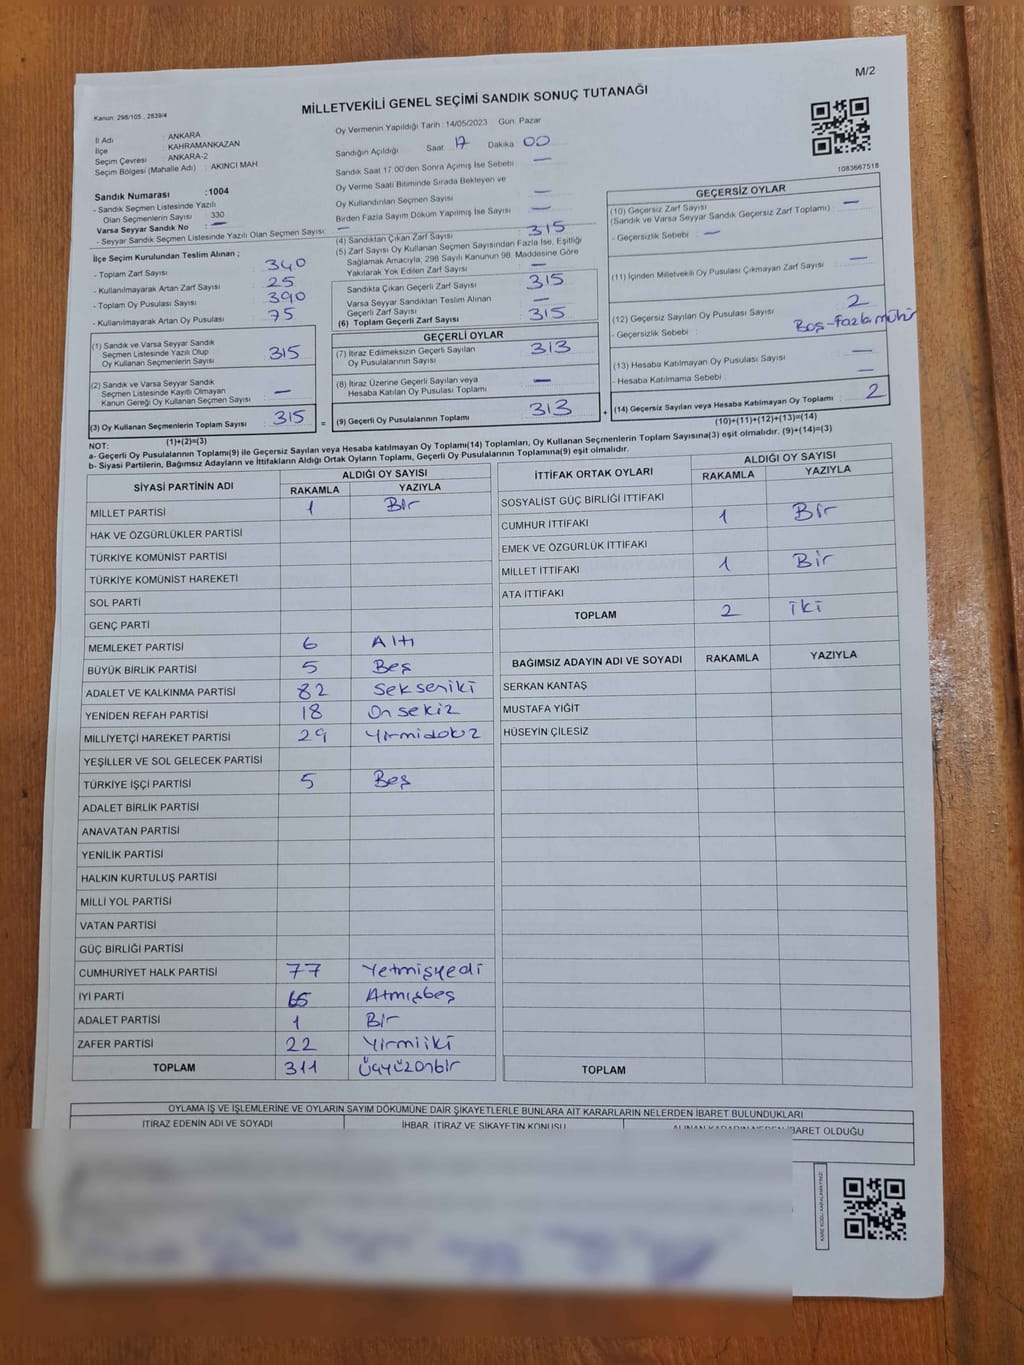 M/2
MİLLETVEKİLİ GENEL SEÇİMİ SANDIK SONUÇ TUTANAĞI
Kanun: 298/105 , 2839/4
İl Adı : ANKARA
İlçe : KAHRAMANKAZAN
Seçim Çevresi : ANKARA-2
Seçim Bölgesi (Mahalle Adı) : AKINCI MAH
Sandık Numarası :1004
- Sandık Seçmen Listesinde Yazılı
Olan Seçmenlerin Sayısı : 330
Varsa Seyyar Sandık No : —
- Seyyar Sandık Seçmen Listesinde Yazılı Olan Seçmen Sayısı: —
Oy Vermenin Yapıldığı Tarih : 14/05/2023 Gün: Pazar
Sandığın Açıldığı Saat 17 Dakika 00
Sandık Saat 17:00'den Sonra Açılmış İse Sebebi : —
Oy Verme Saati Bitiminde Sırada Bekleyen ve
Oy Kullandırılan Seçmen Sayısı : —
Birden Fazla Sayım Döküm Yapılmış İse Sayısı : —
1083667518
İlçe Seçim Kurulundan Teslim Alınan ;
- Toplam Zarf Sayısı : 340
- Kullanılmayarak Artan Zarf Sayısı : 25
- Toplam Oy Pusulası Sayısı : 390
- Kullanılmayarak Artan Oy Pusulası : 75
(1) Sandık ve Varsa Seyyar Sandık
Seçmen Listesinde Yazılı Olup
Oy Kullanan Seçmenlerin Sayısı : 315
(2) Sandık ve Varsa Seyyar Sandık
Seçmen Listesinde Kayıtlı Olmayan
Kanun Gereği Oy Kullanan Seçmen Sayısı : —
(3) Oy Kullanan Seçmenlerin Toplam Sayısı : 315 =
(1)+(2)=(3)
(4) Sandıktan Çıkan Zarf Sayısı : 315
(5) Zarf Sayısı Oy Kullanan Seçmen Sayısından Fazla İse, Eşitliği
Sağlamak Amacıyla, 298 Sayılı Kanunun 98. Maddesine Göre
Yakılarak Yok Edilen Zarf Sayısı : —
Sandıkta Çıkan Geçerli Zarf Sayısı : 315
Varsa Seyyar Sandıktan Teslim Alınan
Geçerli Zarf Sayısı : —
(6) Toplam Geçerli Zarf Sayısı : 315
GEÇERLİ OYLAR
(7) İtiraz Edilmeksizin Geçerli Sayılan
Oy Pusulalarının Sayısı : 313
(8) İtiraz Üzerine Geçerli Sayılan veya
Hesaba Katılan Oy Pusulası Toplamı : —
(9) Geçerli Oy Pusulalarının Toplamı : 313 +
GEÇERSİZ OYLAR
(10) Geçersiz Zarf Sayısı : —
(Sandık ve Varsa Seyyar Sandık Geçersiz Zarf Toplamı)
- Geçersizlik Sebebi : —
(11) İçinden Milletvekili Oy Pusulası Çıkmayan Zarf Sayısı : —
(12) Geçersiz Sayılan Oy Pusulası Sayısı : 2
- Geçersizlik Sebebi : Boş-fazla mühür
(13) Hesaba Katılmayan Oy Pusulası Sayısı : —
- Hesaba Katılmama Sebebi : —
(14) Geçersiz Sayılan veya Hesaba Katılmayan Oy Toplamı : 2
(10)+(11)+(12)+(13)=(14)
NOT:
a- Geçerli Oy Pusulalarının Toplamı(9) ile Geçersiz Sayılan veya Hesaba katılmayan Oy Toplamı(14) Toplamları, Oy Kullanan Seçmenlerin Toplam Sayısına(3) eşit olmalıdır. (9)+(14)=(3)
b- Siyasi Partilerin, Bağımsız Adayların ve İttifakların Aldığı Ortak Oyların Toplamı, Geçerli Oy Pusulalarının Toplamına(9) eşit olmalıdır.
SİYASİ PARTİNİN ADI ALDIĞI OY SAYISI
RAKAMLA YAZIYLA
MİLLET PARTİSİ 1 Bir
HAK VE ÖZGÜRLÜKLER PARTİSİ
TÜRKİYE KOMÜNİST PARTİSİ
TÜRKİYE KOMÜNİST HAREKETİ
SOL PARTİ
GENÇ PARTİ
MEMLEKET PARTİSİ 6 Altı
BÜYÜK BİRLİK PARTİSİ 5 Beş
ADALET VE KALKINMA PARTİSİ 82 Sekseniki
YENİDEN REFAH PARTİSİ 18 Onsekiz
MİLLİYETÇİ HAREKET PARTİSİ 29 Yirmidokuz
YEŞİLLER VE SOL GELECEK PARTİSİ
TÜRKİYE İŞÇİ PARTİSİ 5 Beş
ADALET BİRLİK PARTİSİ
ANAVATAN PARTİSİ
YENİLİK PARTİSİ
HALKIN KURTULUŞ PARTİSİ
MİLLİ YOL PARTİSİ
VATAN PARTİSİ
GÜÇ BİRLİĞİ PARTİSİ
CUMHURİYET HALK PARTİSİ 77 Yetmişyedi
İYİ PARTİ 65 Atmışbeş
ADALET PARTİSİ 1 Bir
ZAFER PARTİSİ 22 Yirmiiki
TOPLAM 311 Üçyüzonbir
İTTİFAK ORTAK OYLARI ALDIĞI OY SAYISI
RAKAMLA YAZIYLA
SOSYALİST GÜÇ BİRLİĞİ İTTİFAKI
CUMHUR İTTİFAKI 1 Bir
EMEK VE ÖZGÜRLÜK İTTİFAKI
MİLLET İTTİFAKI 1 Bir
ATA İTTİFAKI
TOPLAM 2 İki
BAĞIMSIZ ADAYIN ADI VE SOYADI RAKAMLA YAZIYLA
SERKAN KANTAŞ
MUSTAFA YİĞİT
HÜSEYİN ÇİLESİZ
TOPLAM
OYLAMA İŞ VE İŞLEMLERİNE VE OYLARIN SAYIM DÖKÜMÜNE DAİR ŞİKAYETLERLE BUNLARA AİT KARARLARIN NELERDEN İBARET BULUNDUKLARI
İTİRAZ EDENİN ADI VE SOYADI İHBAR, İTİRAZ VE ŞİKAYETİN KONUSU ALINAN KARARIN NEDEN İBARET OLDUĞU